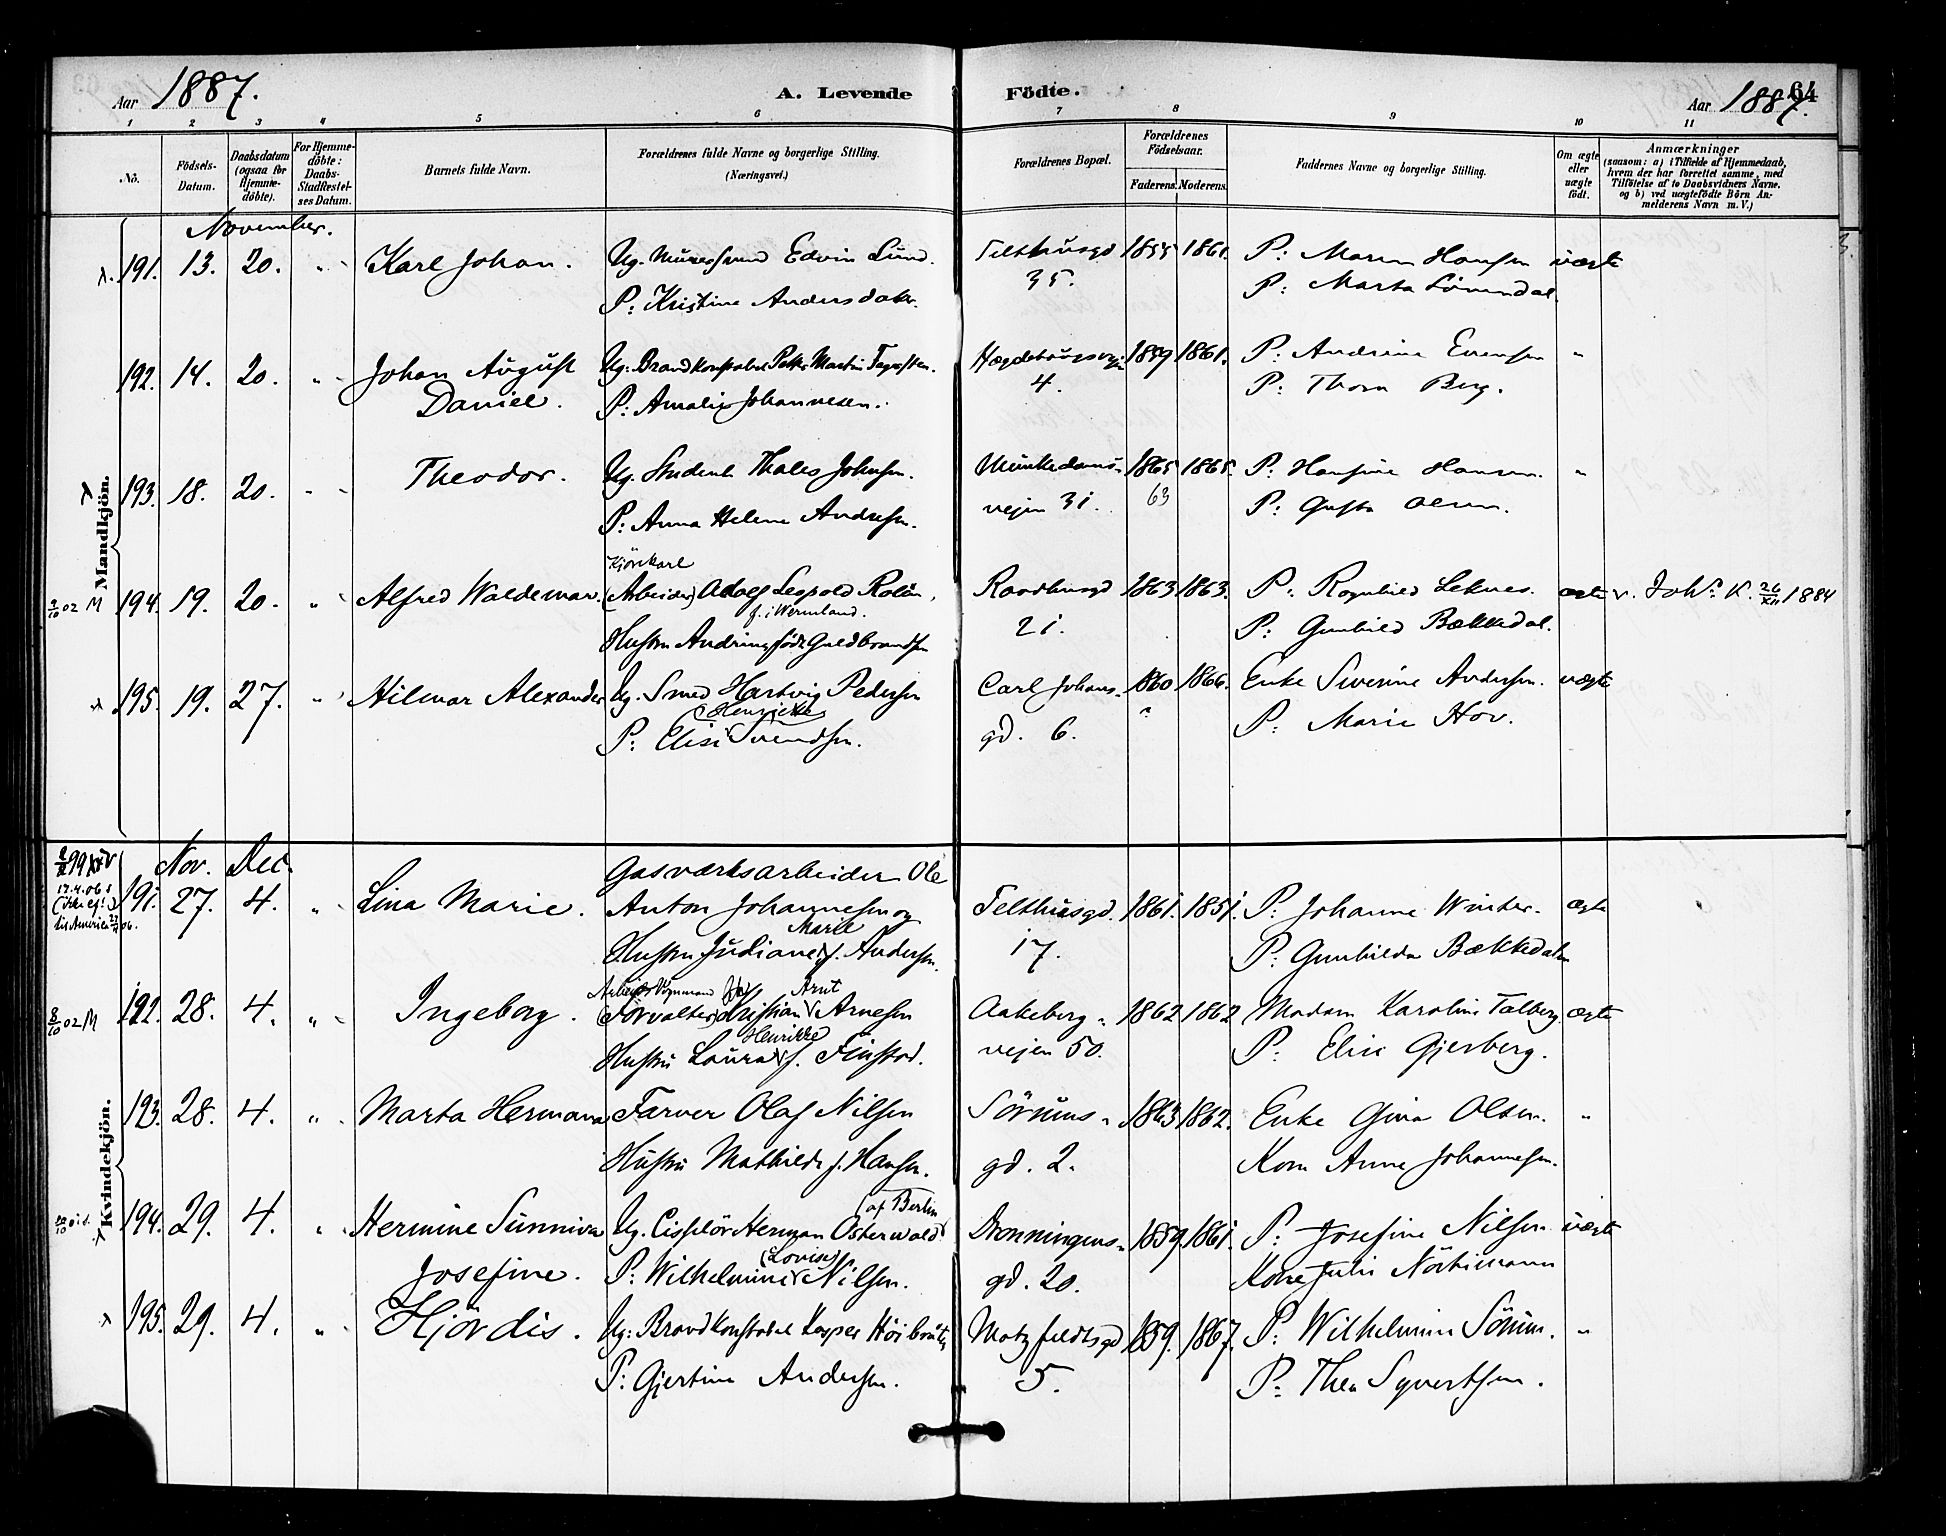 Aar 1887.
A. Levende Födte.
Aar 1887.
64
1 2 3 4 5 6 7 8 9 10 11
No.
Födsels-Datum.
Daabsdatum (ogsaa for Hjemme-döbte).
For Hjemme-döbte: Daabs-Stadfæstel-ses Datum.
Barnets fulde Navn.
Forældrenes fulde Navne og borgerlige Stilling. (Næringsvei.)
Forældrenes Bopæl.
Forældrenes Födselsaar.
Faderens. Moderens.
Faddernes Navne og borgerlige Stilling.
Om ægte eller uægte födt.
Anmærkninger
(saasom: a) i Tilfælde af Hjemmedaab, hvem der har forrettet samme, med Tilföielse af to Daabsvidners Navne. og b) ved uægtefödte Börn An-melderens Navn m. V.)
Mandkjön.
November.
191. 13. 20. " Karl Johan. Ug. Murersvend Edvin Lund. Telthusgd 1855 1861. P: Maren Hansen uægte
P: Kristine Andersdatr. 35. P: Marta Lövendal.
192. 14. 20. " Johan August Ug. Brandkonstabel Petter Martin Hægdehaugsveien 1859 1861. P: Andrine Evensen "
Daniel. P: Amalie Johannesen. 4. P: Thora Berg.
193. 18. 20. " Theodor. Ug. Student Thales Johnsen. Munkedams- 1865 1865. P: Hansine Hansen. "
P: Anna Helene Andresen. vejen 31. 63 P: Gusta Olsen.
Kjörekarl
8/10 02 M 194. 19. 20. " Alfred Waldemar. (Arbeider) Adolf Leopold Rolén, Raadhusgd 1863 1863. P: Ragnhild Leknes. ægte v. Joh. K. 26/XII 1884
f. i Wermland.
Hustru Andrine född Guldbrandsen 21. P: Gunhild Bækkedal.
195. 19. 27. " Hilmar Alexander Ug. Smed Hartvig Pedersen Carl Johans- 1860 1866. Enke Severine Andersen. uægte
(Henriette)
P: Elise Svendsen. gd. 6. P: Marie Hov.
Kvindekjön.
Nov. Dec.
Gasværksarbeider Ole
191. 27. 4. " Lina Marie. Anton Johannesen og Telthusgd. 1861. 1851. P: Johanne Winter. ægte
til Amerika
Marie
Hustru Judiane f. Andersen. 17. P: Gunhilda Bækkedalen
Arbeider Vognmand Arnt
8/10 02 M 192. 28. 4. " Ingeborg. (Forvalter) Kristian Arnesen Aakeberg- 1862 1862 Madam Karoline Talberg. ægte
Henrikke
Hustru Laura f. Finstad. vejen 50. P. Elise Gjerberg.
193. 28. 4. " Marta Hermana Farver Olaf Nilsen Sörums- 1863 1862. Enke Gina Olsen. "
Hustru Mathilde f. Hansen. gd. 2. Kone Anne Johannesen.
(af Berlin
194. 29. 4. " Hermine Sunniva Ug. Ciselör Herman Osterwald Dronningens- 1859. 1861. P: Josefine Nilsen uægte
(Lovise)
Josefine. P: Wilhelmine Nilsen. gd. 20. Kone Julie
195. 29. 4. " Hjördis. Ug: Brandkonstabel Kasper Höibraaten Motzfeldtsgd 1859. 1867. P: Wilhelmine Sörum. "
P: Gjertine Andersen. 5. P: Thea Syvertsen.